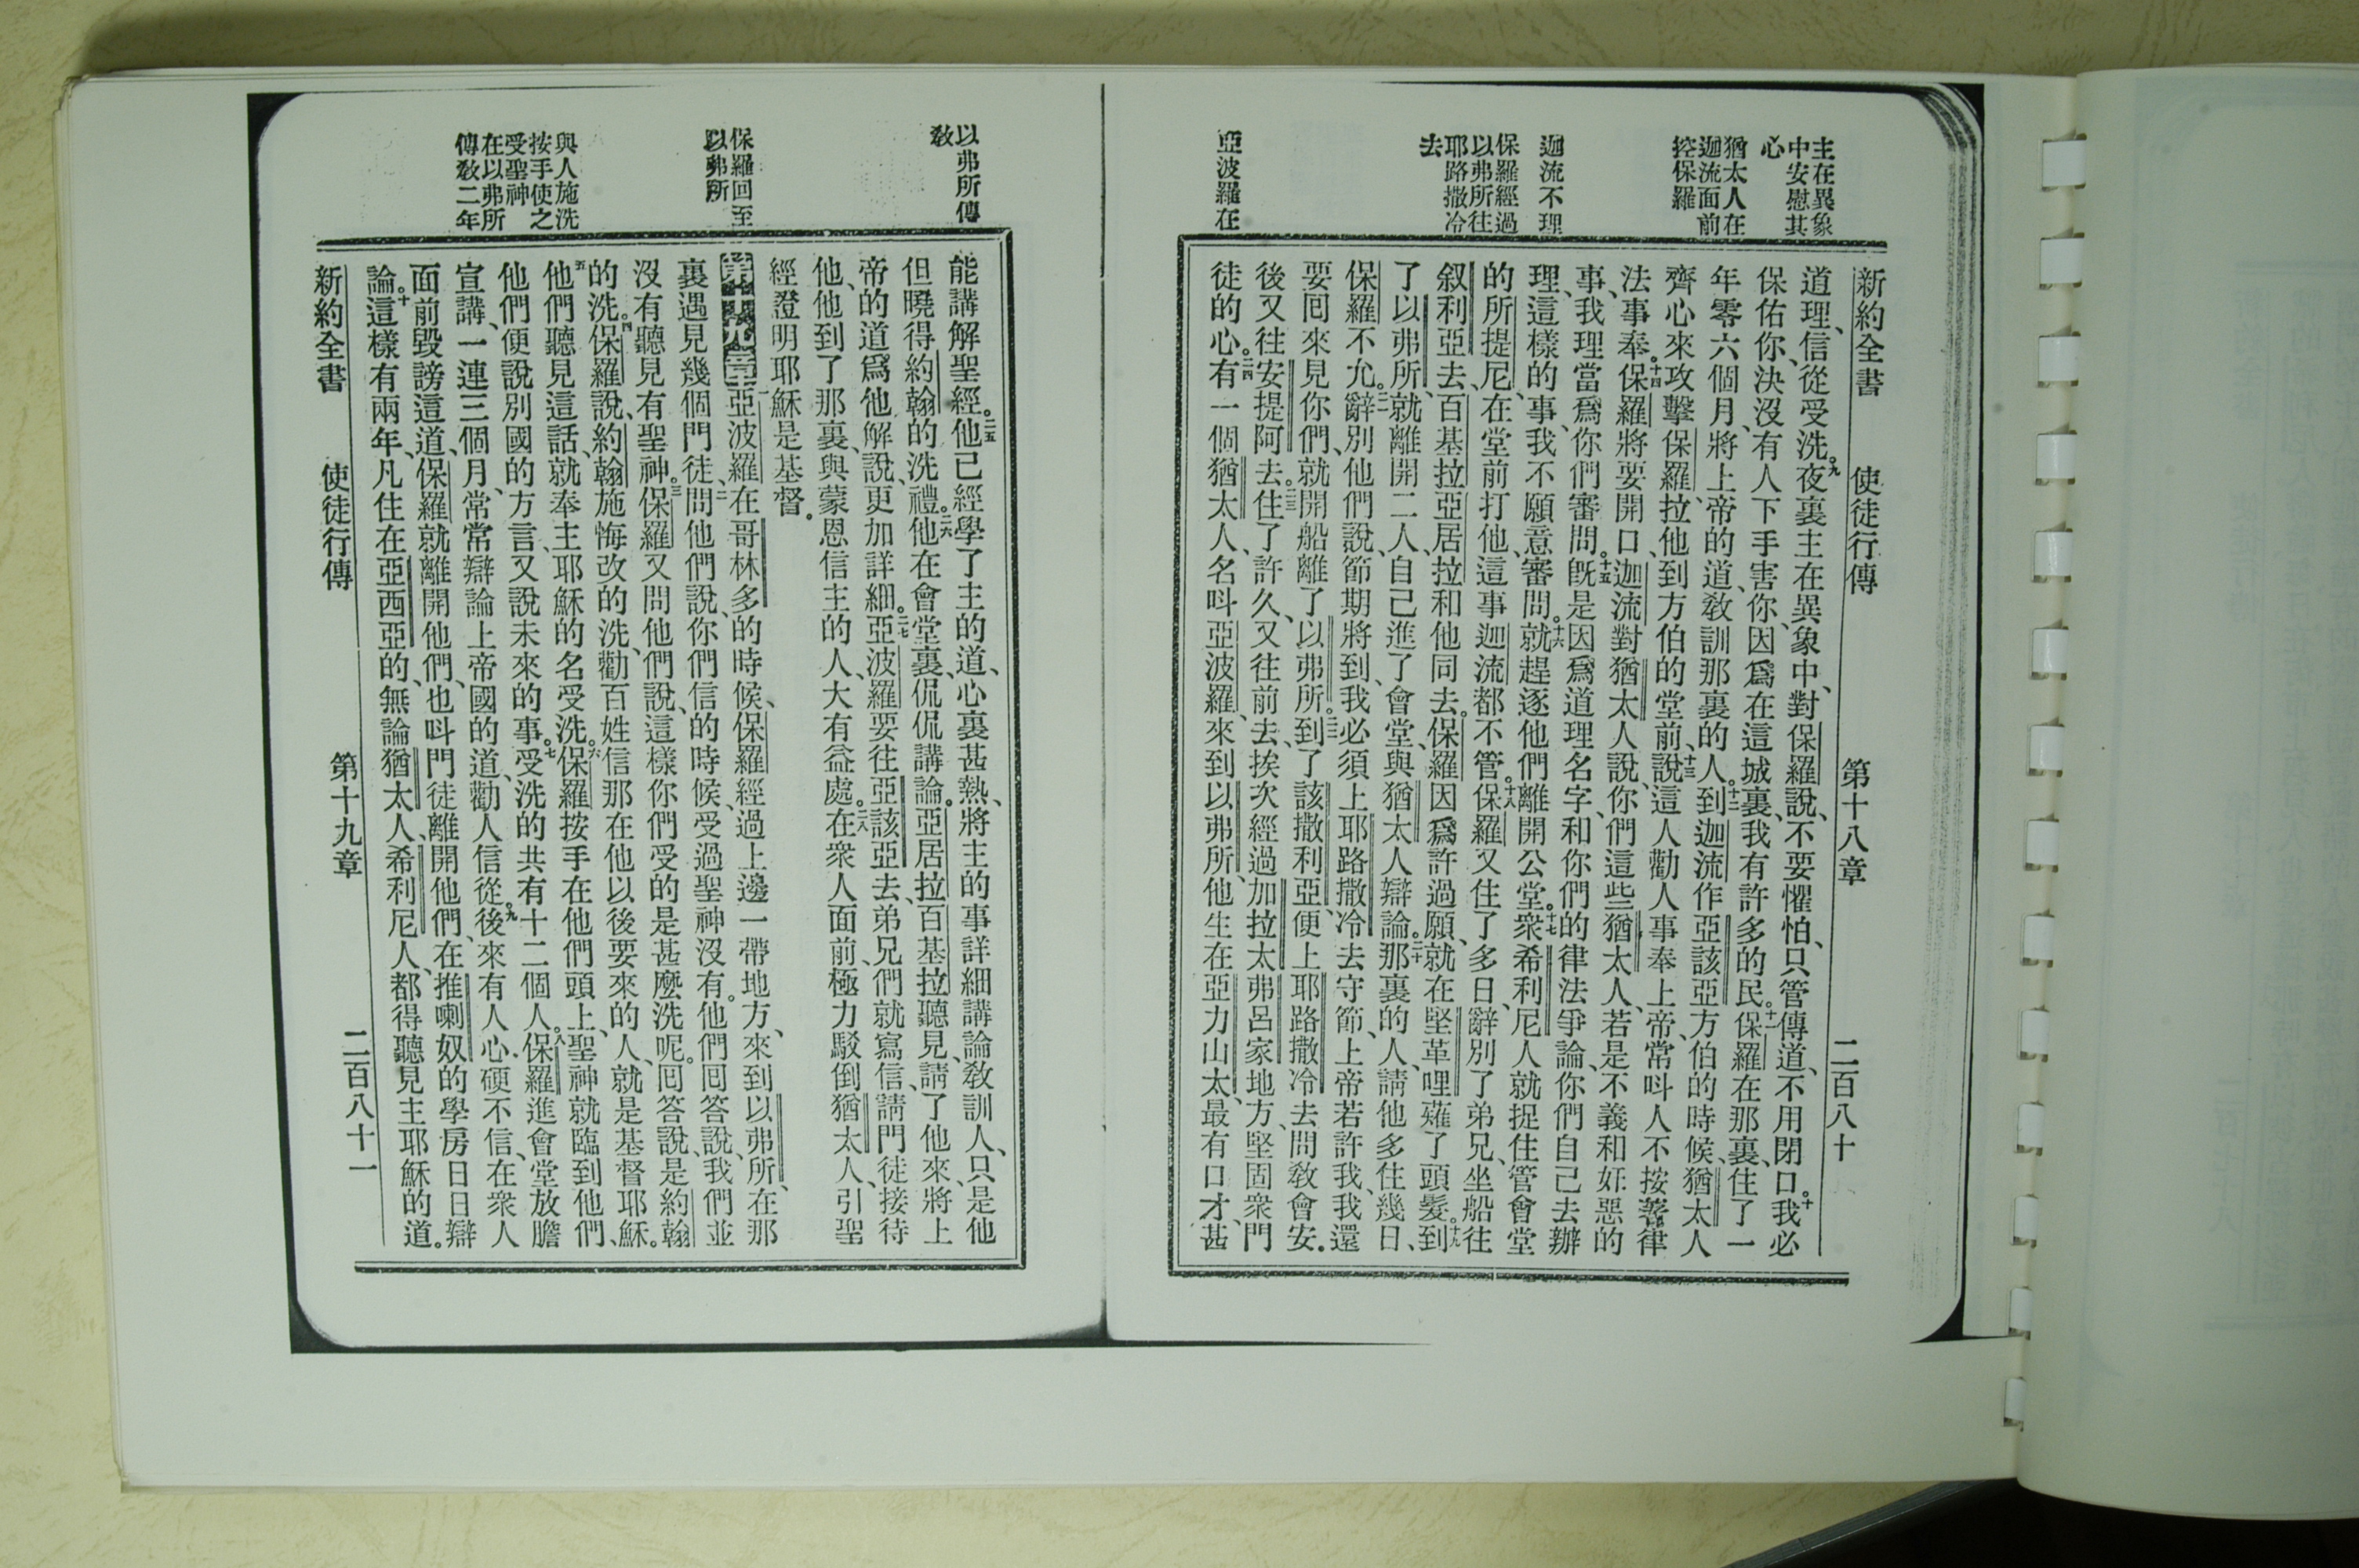 新約全書 使徒行傳 第十八章 二百八十
主在異象
中安慰其
心
猶太人在
迦流面前
控保羅
迦流不理
保羅經過
以弗所往
耶路撒冷
去
亞波羅在
道理、信從受洗。九夜裏主在異象中、對保羅說、不要懼怕、只管傳道、不用閉口。十我必
保佑你、決沒有人下手害你、因爲在這城裏、我有許多的民。十一保羅在那裏、住了一
年零六個月、將上帝的道、敎訓那裏的人。十二到迦流作亞該亞方伯的時候、猶太人
齊心來攻擊保羅、拉他到方伯的堂前、十三說這人勸人事奉上帝、常呌人不按着律
法事奉。十四保羅將要開口、迦流對猶太人說、你們這些猶太人、若是不義和奸惡的
事、我理當爲你們審問。十五旣是因爲道理名字、和你們的律法爭論、你們自己去辦
理、這樣的事、我不願意審問。十六就趕逐他們離開公堂。十七衆希利尼人就捉住管會堂
的所提尼、在堂前打他、這事迦流都不管。十八保羅又住了多日、辭別了弟兄、坐船往
叙利亞去、百基拉亞居拉和他同去。保羅因爲許過願、就在堅革哩薙了頭髮。十九到
了以弗所、就離開二人、自己進了會堂、與猶太人辯論。二十那裏的人、請他多住幾日、
保羅不允。二一辭別他們說、節期將到、我必須上耶路撒冷去守節、上帝若許我、我還
要囘來見你們、就開船離了以弗所。二二到了該撒利亞、便上耶路撒冷去、問敎會安。
後又往安提阿去。二三住了許久、又往前去、挨次經過加拉太弗呂家地方、堅固衆門
徒的心。二四有一個猶太人、名呌亞波羅、來到以弗所、他生在亞力山太、最有口才、甚
以弗所傳
敎
保羅回至
以弗所
與人施洗
按手使之
受聖神
在以弗所
傳敎二年
能講解聖經。二五他已經學了主的道、心裏甚熱、將主的事詳細講論敎訓人、只是他
但曉得約翰的洗禮。二六他在會堂裏、侃侃講論。亞居拉百基拉聽見、請了他來、將上
帝的道爲他解說、更加詳細。二七亞波羅要往亞該亞去、弟兄們就寫信、請門徒接待
他、他到了那裏、與蒙恩信主的人、大有益處。二八在衆人面前、極力駁倒猶太人、引聖
經證明耶穌是基督。
第十九章 一亞波羅在哥林多的時候、保羅經過上邊一帶地方、來到以弗所、在那
裏遇見幾個門徒、二問他們說、你們信的時候受過聖神沒有。他們囘答說、我們並
沒有聽見有聖神。三保羅又問他們說、這樣你們受的是甚麼洗呢。囘答說、是約翰
的洗。四保羅說、約翰施悔改的洗、勸百姓信那在他以後要來的人、就是基督耶穌。
五他們聽見這話、就奉主耶穌的名受洗。六保羅按手在他們頭上、聖神就臨到他們、
他們便說別國的方言、又說未來的事。七受洗的共有十二個人。八保羅進會堂放膽
宣講、一連三個月、常常辯論上帝國的道、勸人信從。九後來有人心硬不信、在衆人
面前毀謗這道、保羅就離開他們、也呌門徒離開他們、在推喇奴的學房日日辯
論。十這樣有兩年、凡住在亞西亞的、無論猶太人、希利尼人、都得聽見主耶穌的道。
新約全書 使徒行傳 第十九章 二百八十一